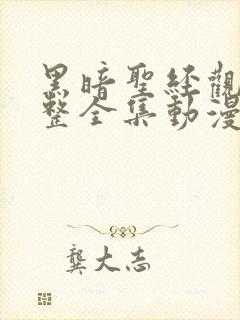 黑暗聖經觀
整全集動漫
龔大志